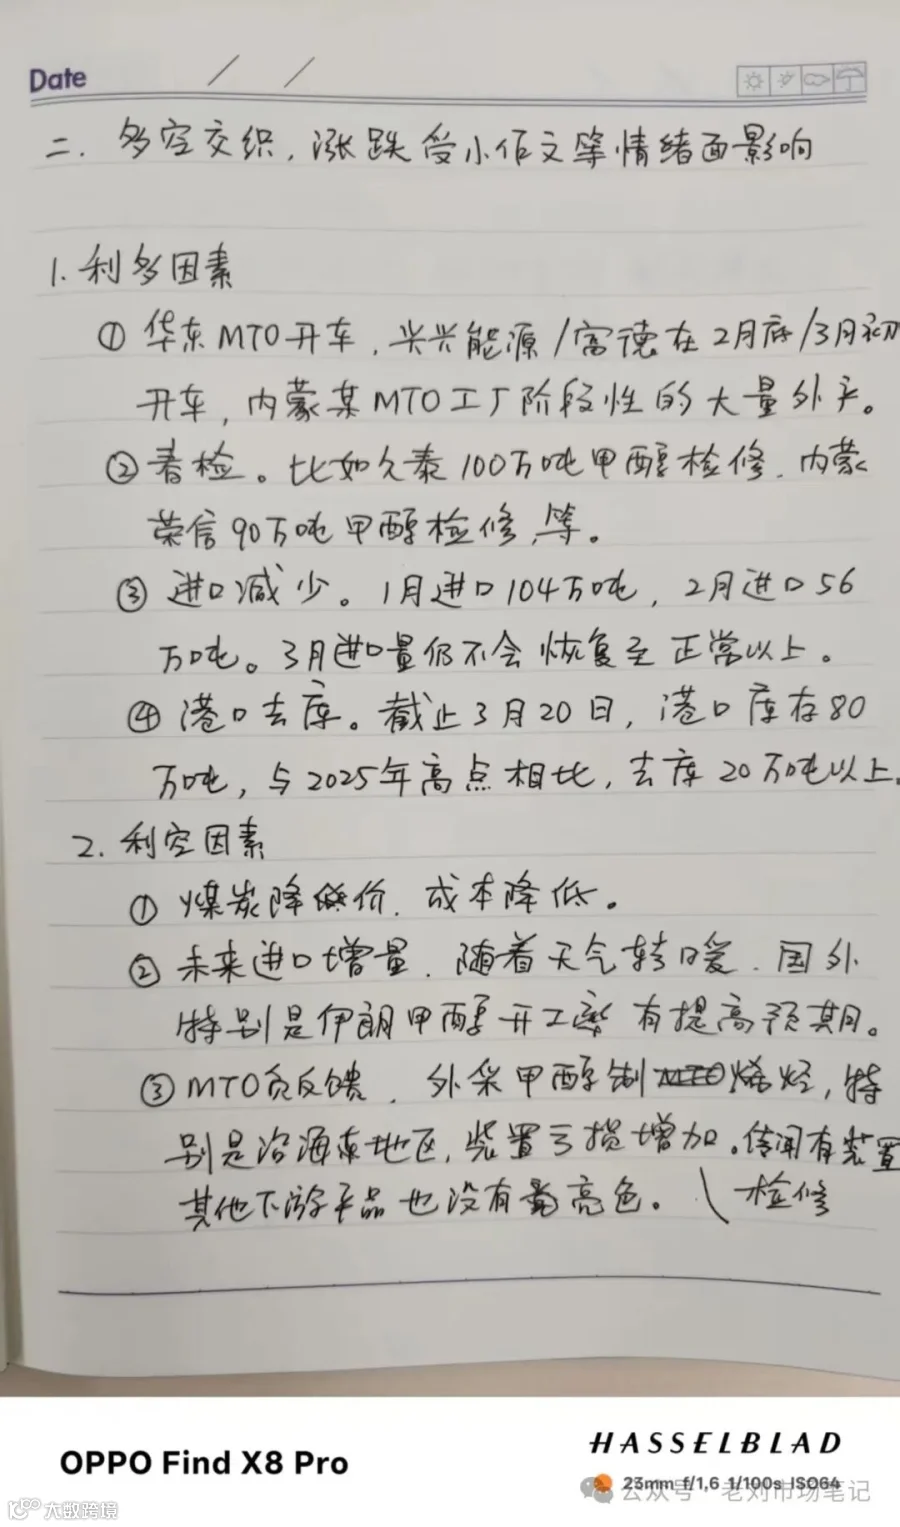 Date / /
二. 多空交织，涨跌受小作文等情绪面影响
1. 利多因素
① 华东MTO开车，兴兴能源/富德在2月底/3月初
开车，内蒙某MTO工厂阶段性的大量外采。
② 春检。比如久泰100万吨甲醇检修，内蒙
荣信90万吨甲醇检修，等。
③ 进口减少。1月进口104万吨，2月进口56
万吨。3月进口量仍不会恢复至正常以上。
④ 港口去库。截止3月20日，港口库存80
万吨，与2025年高点相比，去库20万吨以上。
2. 利空因素
① 煤炭降价，成本降低。
② 未来进口增量，随着天气转暖，国外
特别是伊朗甲醇开工率有提高预期。
③ MTO负反馈，外采甲醇制烯烃，特
别是沿海地区，装置亏损增加。传闻有装置
检修
其他下游产品也没有亮色。
OPPO Find X8 Pro
HASSELBLAD
23mm f/1.6 1/100s ISO64
公众号·老刘市场笔记
大数跨境